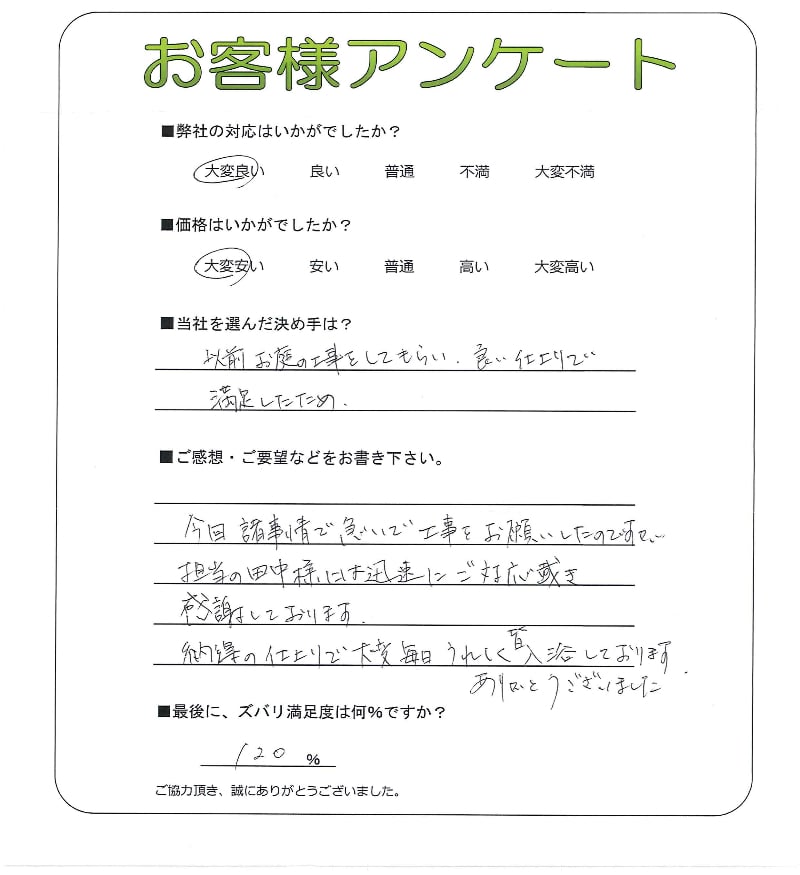 お客様アンケート
■弊社の対応はいかがでしたか？
大変良い 良い 普通 不満 大変不満
■価格はいかがでしたか？
大変安い 安い 普通 高い 大変高い
■当社を選んだ決め手は？
以前お庭の工事をしてもらい、良い仕上りで
満足したため．
■ご感想・ご要望などをお書き下さい。
今回諸事情で急いで工事をお願いしたのですが、
担当の田中様には迅速にご対応戴き
感謝しております．
納得の仕上りで大変毎日うれしく皆入浴しております．
ありがとうございました
■最後に、ズバリ満足度は何％ですか？
120 %
ご協力頂き、誠にありがとうございました。